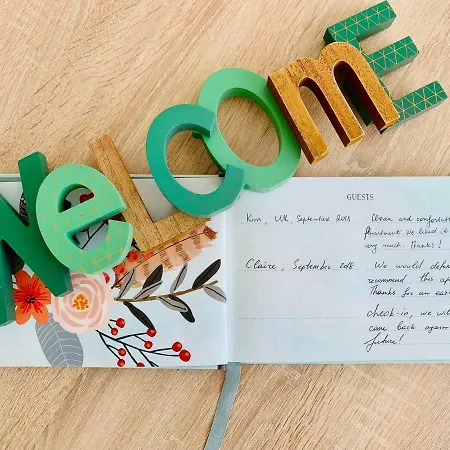 WeLCOmE
GUESTS
Kim, UK, September 2018
Clean and comfortab
Apartment. We liked it
very much. Thanks!
Claire, September 2018
We would defin
recommend this ap
Thanks for an eas
check-in, we will
come back again
future!